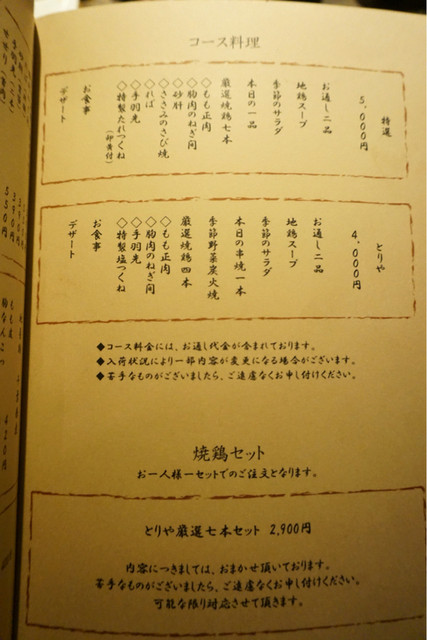 コース料理
特選
5,000円
お通し二品
地鶏スープ
季節のサラダ
本日の一品
厳選焼鶏七本
◇もも正肉
◇胸肉のねぎ間
◇砂肝
◇ささみのさび焼
◇ればー
◇手羽先
◇特製たれつくね
(卵黄付)
お食事
デザート
とりや
4,000円
お通し二品
地鶏スープ
季節のサラダ
本日の串焼一本
季節野菜炭火焼
厳選焼鶏四本
◇もも正肉
◇胸肉のねぎ間
◇手羽先
◇特製塩つくね
お食事
デザート
◆コース料金には、お通し代金が含まれております。
◆入荷状況により一部内容が変更になる場合がございます。
◆苦手なものがございましたら、ご遠慮なくお申し付けください。
焼鶏セット
お一人様一セットでのご注文となります。
とりや厳選七本セット 2,900円
内容につきましては、おまかせ頂いております。
苦手なものがございましたら、ご遠慮なくお申し付けください。
可能な限り対応させて頂きます。
550円
420円